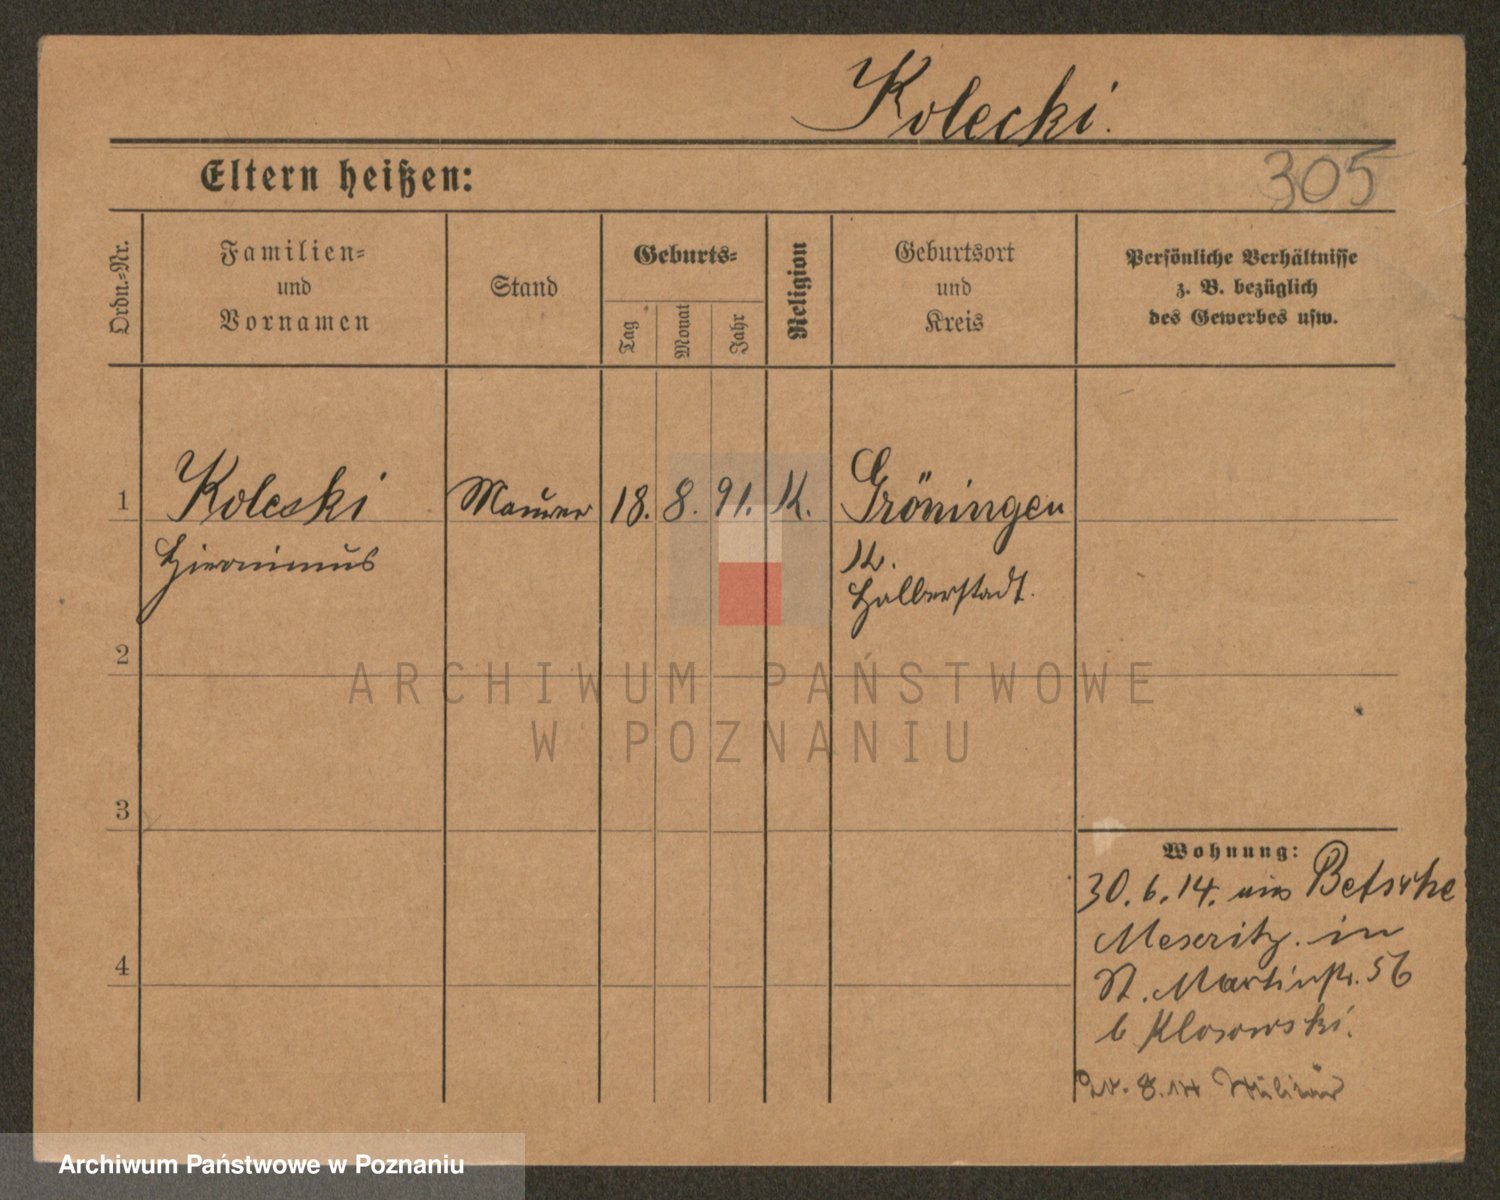 Kolecki.
305
Eltern heißen:
Ordn.-Nr.
Familien-
und
Vornamen
Stand
Geburts-
Tag
Monat
Jahr
Religion
Geburtsort
und
Kreis
Persönliche Verhältnisse
z. B. bezüglich
des Gewerbes usw.
1 Koleski Maurer 18. 8. 91. K. Gröningen
Hieronimus K.
Halberstadt.
2
ARCHIWUM PAŃSTWOWE
W POZNANIU
3
Wohnung:
30. 6. 14. aus Betsche
Meseritz. in
St. Martinstr. 56
b Klosowski.
8. 14 Militär
4
Archiwum Państwowe w Poznaniu